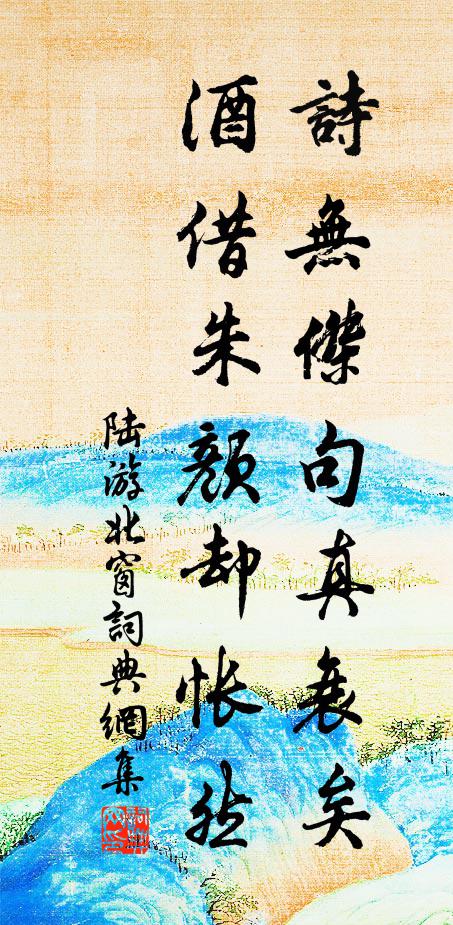 詩無傑句真衰矣
酒借朱顏却悵然
陆游北窗詞典網集